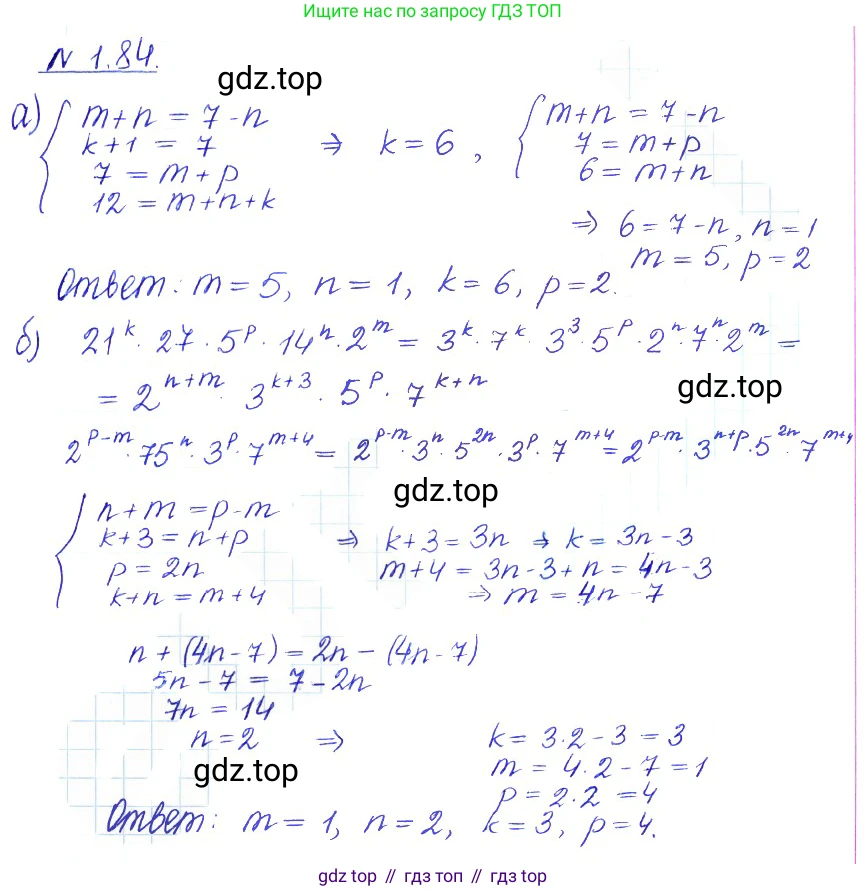 Ищите нас по запросу ГДЗ ТОП
N 1.84.
gdz.top
а) { m+n = 7-n
k+1 = 7 ⇒ k=6, { m+n = 7-n
7 = m+p 7 = m+p
12 = m+n+k 6 = m+n
⇒ 6=7-n, n=1
m=5, p=2
Ответ: m=5, n=1, k=6, p=2.
б) 21^k · 27 · 5^p · 14^n · 2^m = 3^k · 7^k · 3^3 · 5^p · 2^n · 7^n · 2^m =
= 2^{n+m} · 3^{k+3} · 5^p · 7^{k+n}
gdz.top
2^{p-m} · 75^n · 3^p · 7^{m+4} = 2^{p-m} · 3^n · 5^{2n} · 3^p · 7^{m+4} = 2^{p-m} · 3^{n+p} · 5^{2n} · 7^{m+4}
gdz.top
{ n+m = p-m
k+3 = n+p ⇒ k+3 = 3n ⇒ k = 3n-3
p = 2n m+4 = 3n-3+n = 4n-3
k+n = m+4 ⇒ m = 4n-7
n + (4n-7) = 2n - (4n-7)
5n-7 = 7-2n
7n = 14
n=2 ⇒ k = 3·2-3 = 3
m = 4·2-7 = 1
gdz.top
p = 2·2 = 4
Ответ: m=1, n=2, k=3, p=4.
gdz.top // гдз топ // гдз top